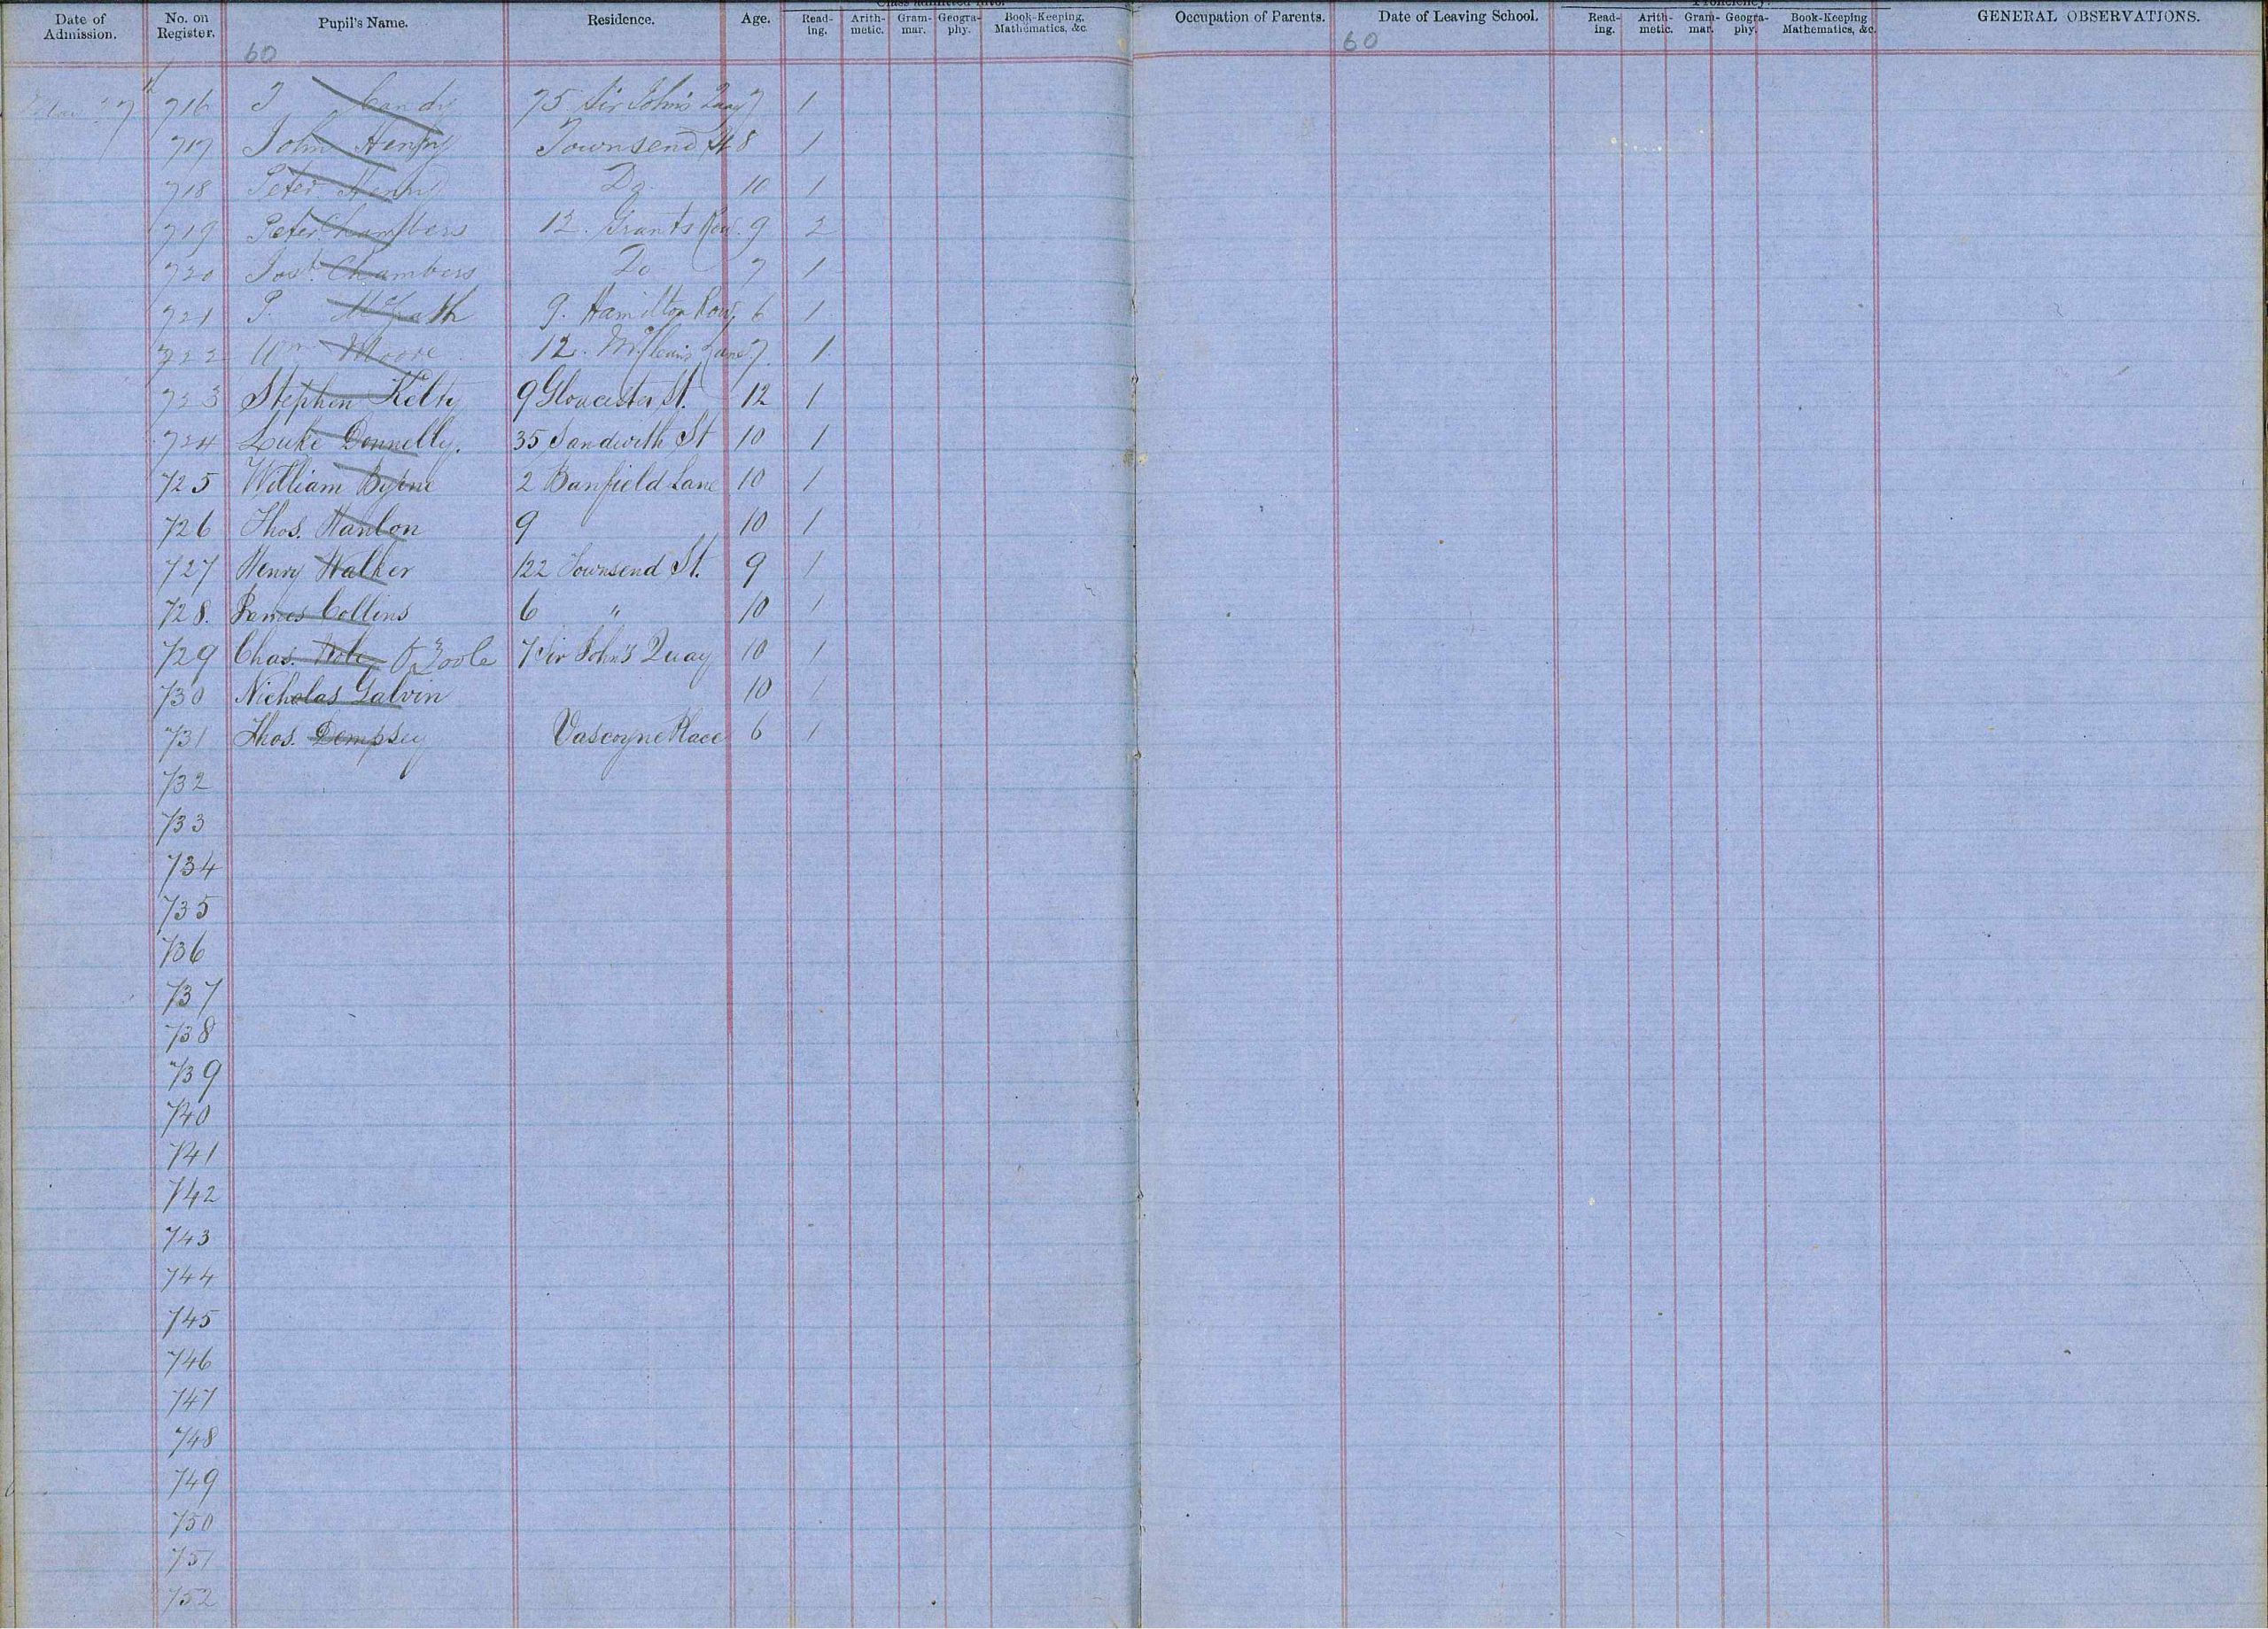 Class admitted into. Proficiency.
Date of Admission. No. on Register. Pupil's Name. Residence. Age. Read-ing. Arith-metic. Gram-mar. Geogra-phy. Book-Keeping, Mathematics, &c. Occupation of Parents. Date of Leaving School. Read-ing. Arith-metic. Gram-mar. Geogra-phy. Book-Keeping Mathematics, &c. GENERAL OBSERVATIONS.
60 60
716 75 Sir John's Quay 7 1
717 John Henry Townsend St 8 1
718 Peter Henry Do. 10 1
719 Peter Chambers 12. Grants Row. 9 2
720 Josh. Chambers Do 7 1
721 P. McGrath 9. Hamilton Row, 6 1
722 Wm Moore 12. Lane 7. 1
723 Stephen Kelly 9 Gloucester St. 12 1
724 Luke Donnelly. 35 Sandwith St 10 1
725 William Byrne 2 Banfield Lane 10 1
726 Thos. Hanlon 9 10 1
727 Henry Walker 122 Townsend St. 9 1
728. James Collins 6 " 10 1
729 Chas. Toole 7 Sir John's Quay 10 1
730 Nicholas Galvin 10 1
731 Thos. Dempsey Place 6 1
732
733
734
735
736
737
738
739
740
741
742
743
744
745
746
747
748
749
750
751
752